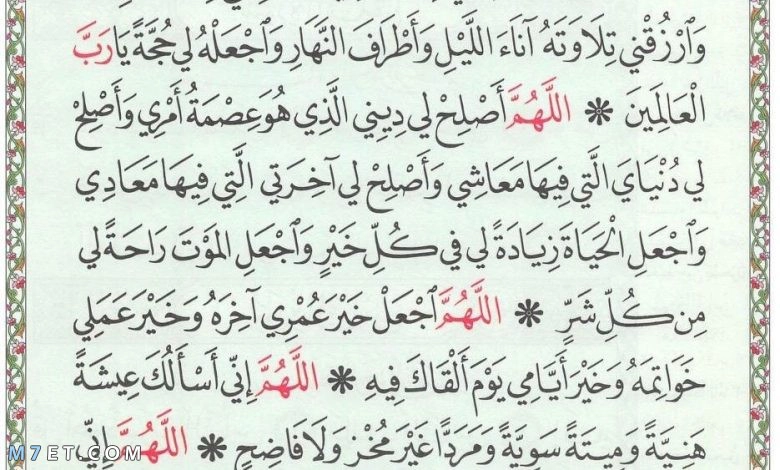 وَارْزُقْنِي تِلَاوَتَهُ آنَاءَ اللَّيْلِ وَأَطْرَافَ النَّهَارِ وَاجْعَلْهُ لِي حُجَّةً يَا رَبَّ
الْعَالَمِينَ ❋ اللَّهُمَّ أَصْلِحْ لِي دِينِي الَّذِي هُوَ عِصْمَةُ أَمْرِي وَأَصْلِحْ
لِي دُنْيَايَ الَّتِي فِيهَا مَعَاشِي وَأَصْلِحْ لِي آخِرَتِي الَّتِي فِيهَا مَعَادِي
وَاجْعَلِ الْحَيَاةَ زِيَادَةً لِي فِي كُلِّ خَيْرٍ وَاجْعَلِ الْمَوْتَ رَاحَةً لِي
مِن كُلِّ شَرٍّ ❋ اللَّهُمَّ اجْعَلْ خَيْرَ عُمْرِي آخِرَهُ وَخَيْرَ عَمَلِي
خَوَاتِمَهُ وَخَيْرَ أَيَّامِي يَوْمَ أَلْقَاكَ فِيهِ ❋ اللَّهُمَّ إِنِّي أَسْأَلُكَ عِيشَةً
هَنِيَّةً وَمِيتَةً سَوِيَّةً وَمَرَدًّا غَيْرَ مُخْزٍ وَلَا فَاضِحٍ ❋ اللَّهُمَّ إِنِّي
M7ET.COM